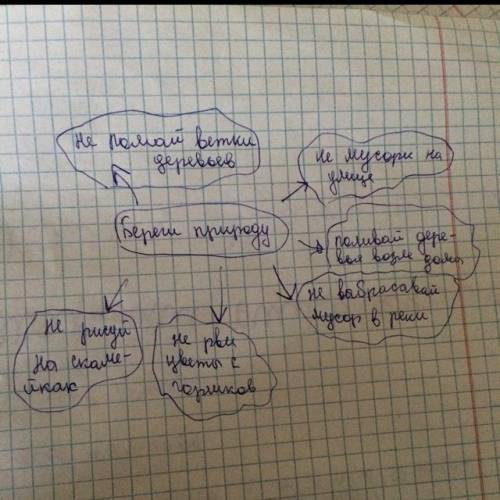 Не ломай ветки
деревьев
Не мусори на
улице
Береги природу
поливай дере-
вья возле дома
Не выбрасавай
мусор в реки
Не рисуй
на скаме-
йках
Не рви
цветы с
горшков